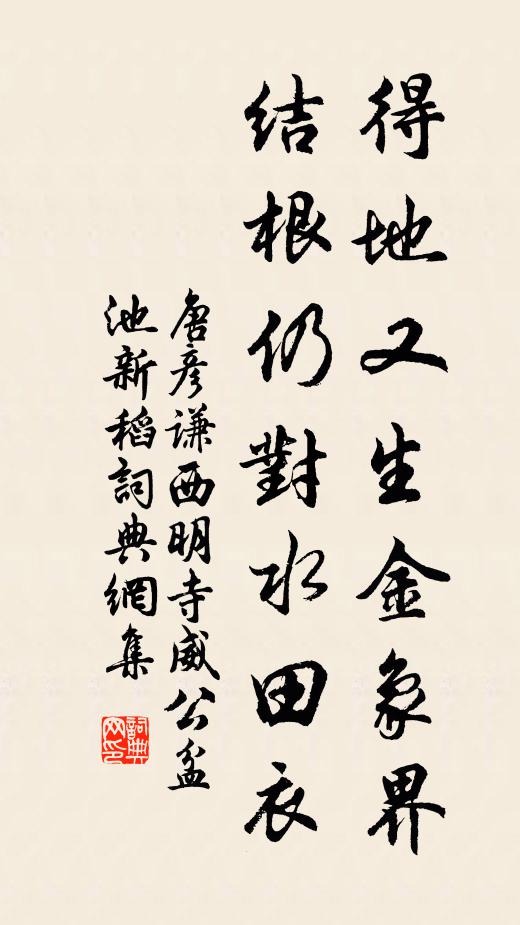 得地又生金象界
結根仍對水田衣
唐彦謙西明寺威公盆
池新稻詞典網集
詞典网印